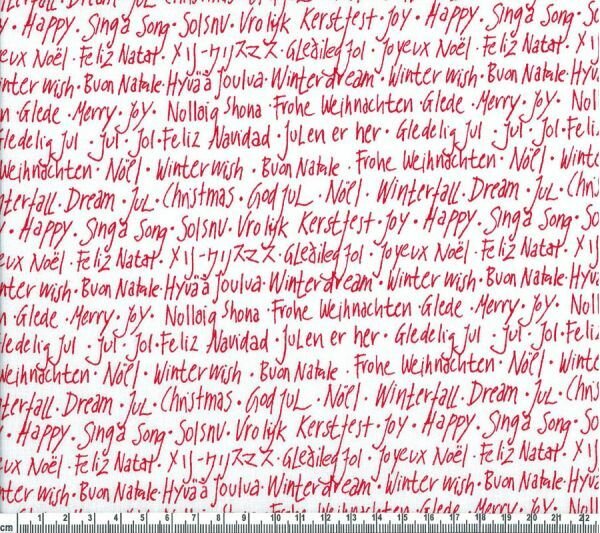 · Happy · Sing a Song · Solsnu · Vrolijk Kerstfest · Joy · Happy · Sing a Song · So
eux Noël · Feliz Natat · メリークリスマス · Gleðileg Jol · Joyeux Noël · Feliz Natat · メリ
nter wish · Buon Natale · Hyvää Joulua · Winterdream · Winter wish · Buon Natale · Hy
n · Glede · Merry · Joy · Nolloig Shona · Frohe Weihnachten · Glede · Merry · Joy · Noll
Gledelig Jul · Jul · Jol · Feliz Navidad · Julen er her · Gledelig Jul · Jul · Jol · Feliz
Weihnachten · Nöel · Winter wish · Buon Natale · Frohe Weihnachten · Nöel · Winte
nterfall · Dream · Jul · Christmas · God Jul · Nöel · Winterfall · Dream · Jul · Chris
· Happy · Sing a Song · Solsnu · Vrolijk Kerstfest · Joy · Happy · Sing a Song · So
eux Noël · Feliz Natat · メリークリスマス · Gleðileg Jol · Joyeux Noël · Feliz Natat · メリ
nter wish · Buon Natale · Hyvää Joulua · Winterdream · Winter wish · Buon Natale · Hy
n · Glede · Merry · Joy · Nolloig Shona · Frohe Weihnachten · Glede · Merry · Joy · Noll
Gledelig Jul · Jul · Jol · Feliz Navidad · Julen er her · Gledelig Jul · Jul · Jol · Feliz
Weihnachten · Nöel · Winter wish · Buon Natale · Frohe Weihnachten · Nöel · Winte
terfall · Dream · Jul · Christmas · God Jul · Nöel · Winterfall · Dream · Jul · Chris
· Happy · Sing a Song · Solsnu · Vrolijk Kerstfest · Joy · Happy · Sing a Song · So
eux Noël · Feliz Natat · メリークリスマス · Gleðileg Jol · Joyeux Noël · Feliz Natat · メリ
nter wish · Buon Natale · Hyvää Joulua · Winterdream · Winter wish · Buon Natale · Hy
n · Glede · Merry · Joy · Nolloig Shona · Frohe Weihnachten · Glede · Merry · Joy · Noll
cm 1 2 3 4 5 6 7 8 9 10 11 12 13 14 15 16 17 18 19 20 21 22